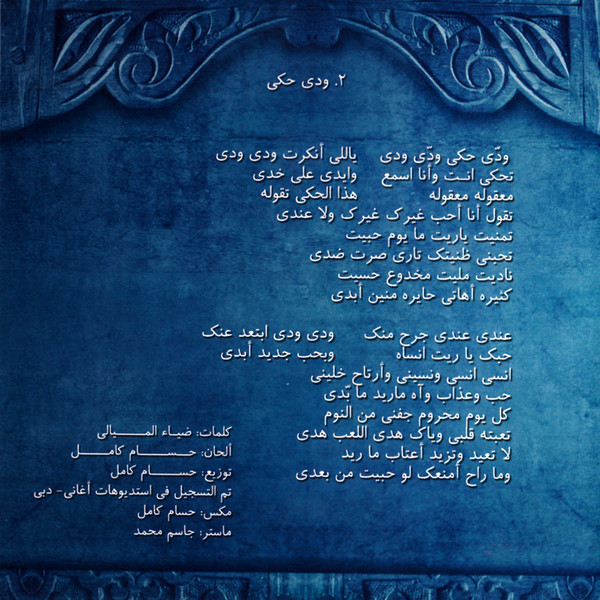 ٢. ودى حكى
ودّى حكى ودّى ودى ياللى أنكرت ودى ودى
تحكى انت وأنا اسمع وايدى على خدى
معقوله معقوله هذا الحكى تقوله
تقول أنا أحب غيرك غيرك ولا عندى
تمنيت ياريت ما يوم حبيت
تحبنى ظنيتك تارى صرت ضدى
ناديت مليت مخدوع حسيت
كثيره أهاتى حايره منين أبدى
عندى عندى جرح منك ودى ودى ابتعد عنك
حبك يا ريت انساه وبحب جديد أبدى
انسى انسى ونسينى وأرتاح خلينى
حب وعذّاب وآه ماريد ما بّدى
كل يوم محروم جفنى من النوم
تعبته قلبى وياك هدى اللعب هدى
لا تعيد وتزيد أعتاب ما ريد
وما راح أمنعك لو حبيت من بعدى
كلمات: ضياء الميالى
ألحان: حسام كامل
توزيع: حسام كامل
تم التسجيل فى استديوهات أغانى- دبى
مكس: حسام كامل
ماستر: جاسم محمد